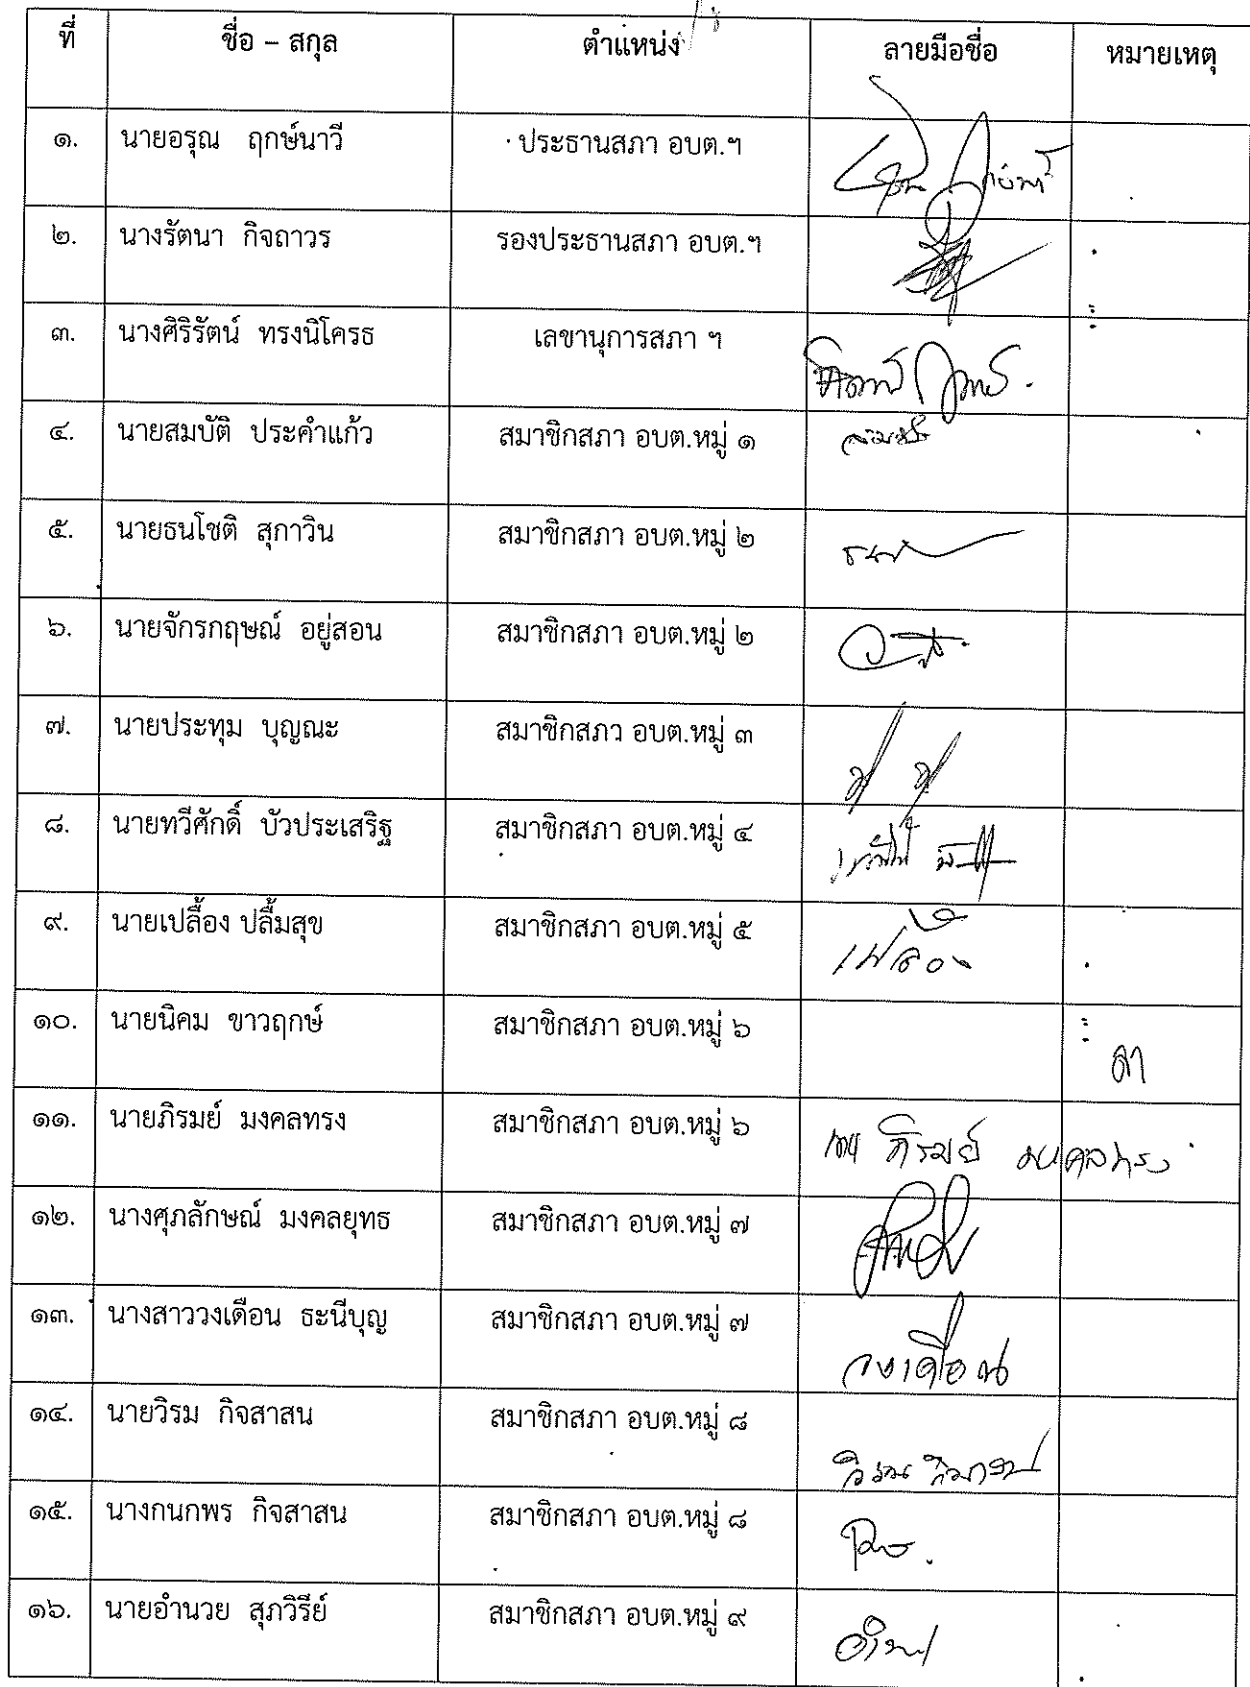 ที่ ชื่อ – สกุล ตำแหน่ง ลายมือชื่อ หมายเหตุ
๑. นายอรุณ ฤกษ์นาวี ประธานสภา อบต.ฯ
๒. นางรัตนา กิจถาวร รองประธานสภา อบต.ฯ
๓. นางศิริรัตน์ ทรงนิโครธ เลขานุการสภา ฯ
๔. นายสมบัติ ประคำแก้ว สมาชิกสภา อบต.หมู่ ๑
๕. นายธนโชติ สุกาวิน สมาชิกสภา อบต.หมู่ ๒
๖. นายจักรกฤษณ์ อยู่สอน สมาชิกสภา อบต.หมู่ ๒
๗. นายประทุม บุญณะ สมาชิกสภว อบต.หมู่ ๓
๘. นายทวีศักดิ์ บัวประเสริฐ สมาชิกสภา อบต.หมู่ ๔
๙. นายเปลื้อง ปลื้มสุข สมาชิกสภา อบต.หมู่ ๕
๑๐. นายนิคม ขาวฤกษ์ สมาชิกสภา อบต.หมู่ ๖ ลา
๑๑. นายภิรมย์ มงคลทรง สมาชิกสภา อบต.หมู่ ๖ ภิรมย์ มงคลทรง
๑๒. นางศุภลักษณ์ มงคลยุทธ สมาชิกสภา อบต.หมู่ ๗
๑๓. นางสาววงเดือน ธะนีบุญ สมาชิกสภา อบต.หมู่ ๗ วงเดือน
๑๔. นายวิรม กิจสาสน สมาชิกสภา อบต.หมู่ ๘ วิรม กิจสาสน
๑๕. นางกนกพร กิจสาสน สมาชิกสภา อบต.หมู่ ๘
๑๖. นายอำนวย สุภวิรีย์ สมาชิกสภา อบต.หมู่ ๙